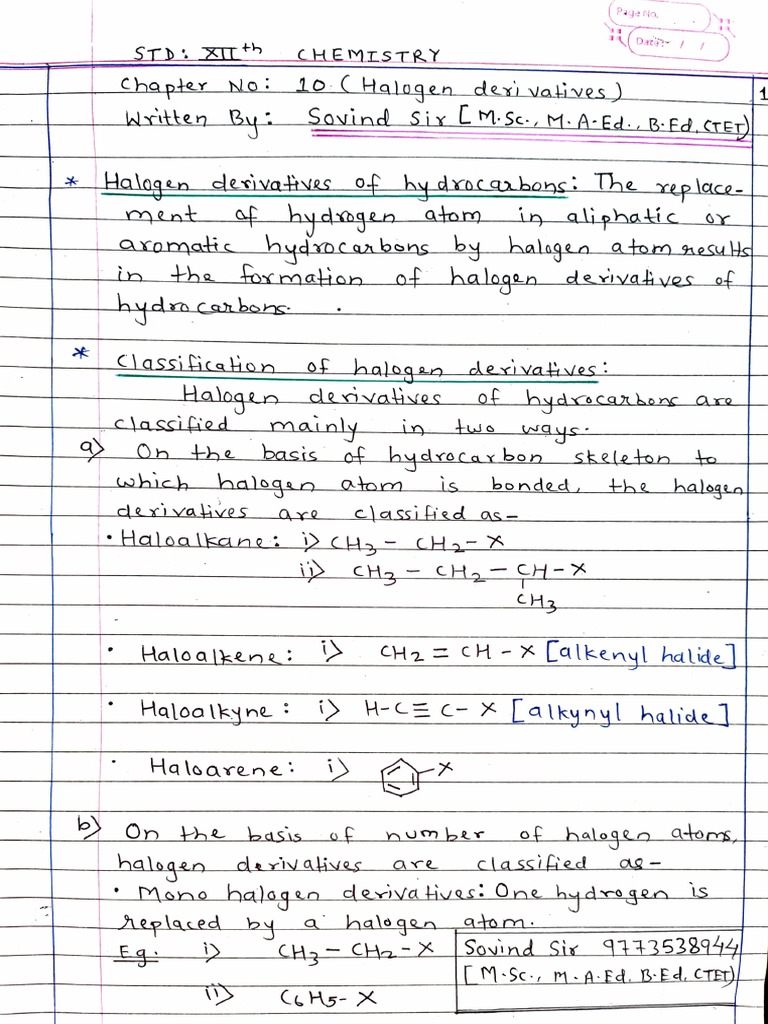 Page No.
Date:- / /
STD: XIIth CHEMISTRY
Chapter No: 10 (Halogen derivatives)
1
Written By: Sovind Sir [M.Sc., M.A.Ed., B.Ed, CTET)
* Halogen derivatives of hydrocarbons: The replace-
ment of hydrogen atom in aliphatic or
aromatic hydrocarbons by halogen atom results
in the formation of halogen derivatives of
hydrocarbons.
* Classification of halogen derivatives:
Halogen derivatives of hydrocarbons are
classified mainly in two ways.
a) On the basis of hydrocarbon skeleton to
which halogen atom is bonded, the halogen
derivatives are classified as-
• Haloalkane: i) CH3 - CH2 - X
ii) CH3 - CH2 - CH - X
CH3
• Haloalkene: i) CH2 = CH - X [alkenyl halide]
• Haloalkyne: i) H-C≡C-X [alkynyl halide]
• Haloarene: i) X
b) On the basis of number of halogen atoms,
halogen derivatives are classified as-
• Mono halogen derivatives: One hydrogen is
replaced by a halogen atom.
Eg. i) CH3 - CH2 - X
ii) C6H5 - X
Sovind Sir 9773538944
[M.Sc., M.A.Ed, B.Ed, CTET)